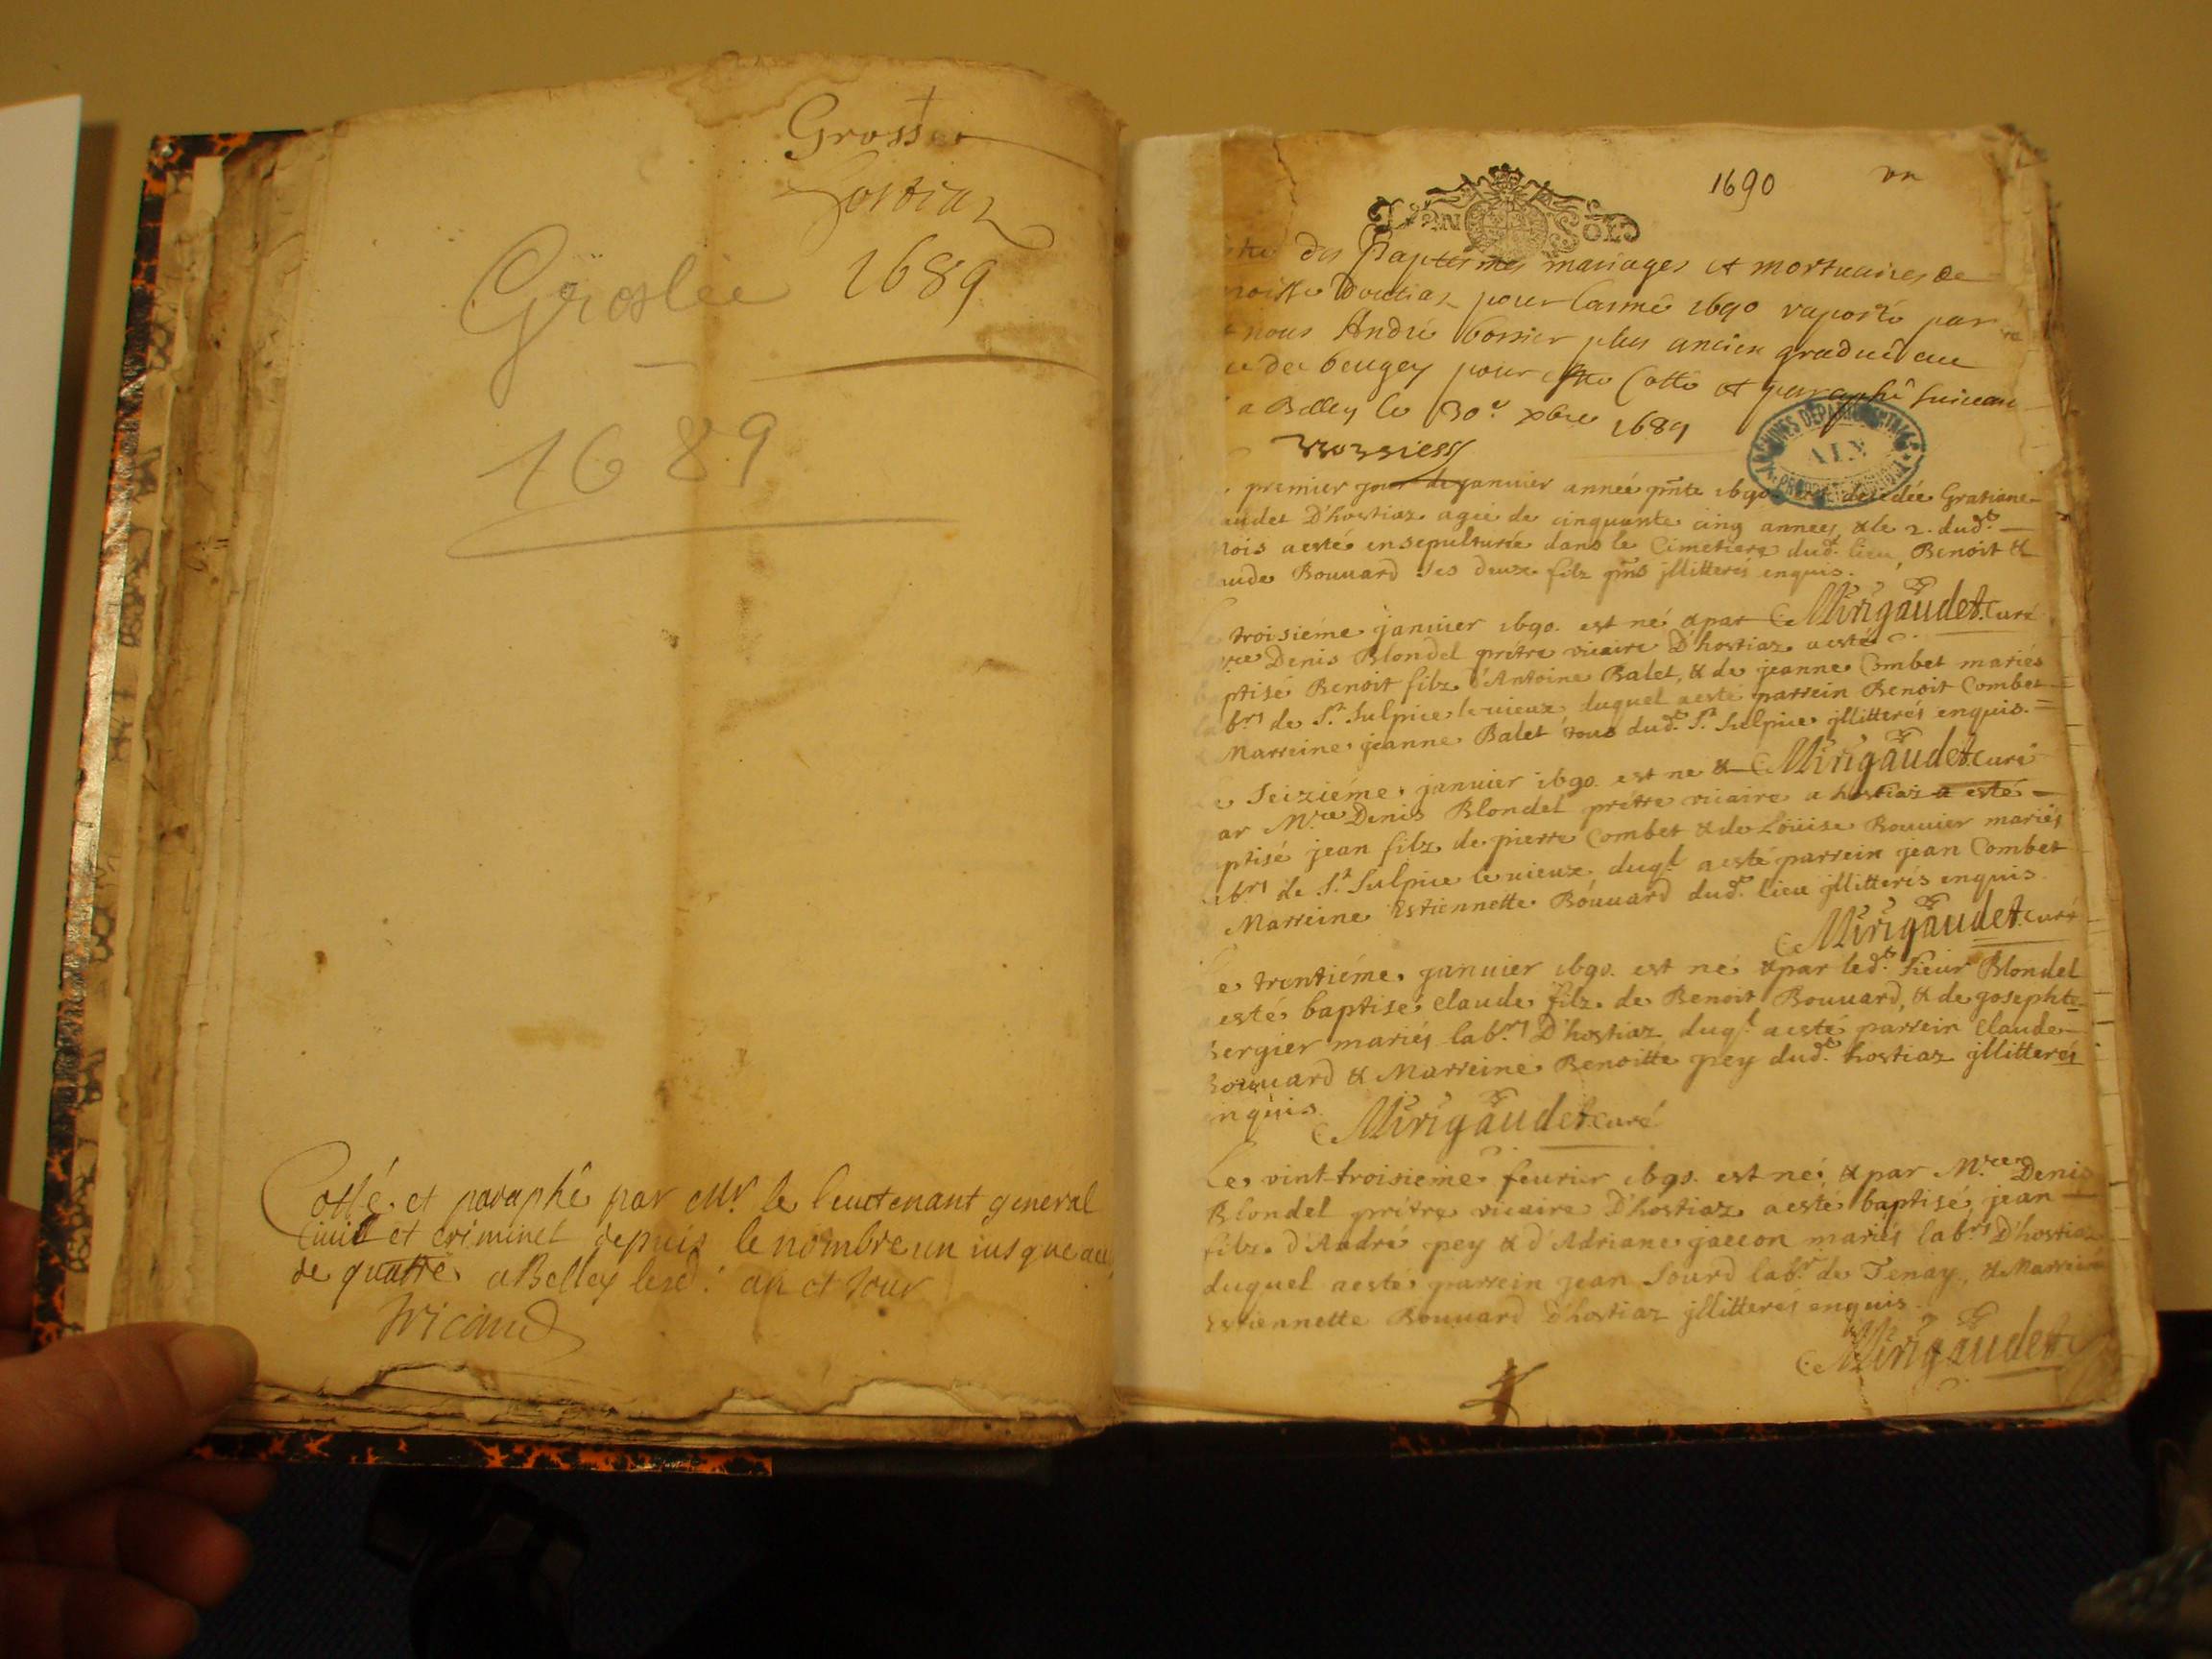 Grosl
hostiaz
1689
Groslée
1689
Cotté et paraphé par Mr le lieutenant general
Civil et criminel depuis le nombre un iusque au
de quattre a Belley lesd. an et Jour
Tricaud
1690 un
des Baptesmes mariages et mortuaires de
d'outriaz pour lannée 1690 raporté par
nous André bossier plus ancien gradué au
de beugey pour estre Cotté et paraphé suivan
a Belley le 30e xbre 1689
ARCHIVES DEPARTEMENTALES
AIN
premier jour de januier année pnte 1690 decedée Gratiane
audet D'hostiaz agée de cinquante cinq années, & le 2. dud.t
Mois a esté ensepulturée dans le Cimetiere dud.t lieu, Benoit &
aude Bouuard ses deux filz pnts jllitterés enquis.
troisiéme januier 1690. est né & par Mirigaudet Curé
re Denis Blondel prétre vicaire D'hostiaz a esté
ptisé Benoit filz d'Antoine Balet, & de jeanne Combet mariés
br.s de S.t Sulpice le vieux duquel a esté parrein Benoit Combet
Marreine jeanne Balet tous dud.t S.t Sulpice jllitterés enquis.
Mirigaudet Curé
Seiziéme januier 1690. est né &
ar M.re Denis Blondel prétre vicaire a hostiaz a esté
ptisé jean filz de pierre Combet & de Loüise Bouuier mariés
br.s de S.t Sulpice le vieux duq.l a esté parrein jean Combet
Marreine Estiennette Bouuard dud.t lieu jllitterés enquis
Mirigaudet Curé
e trentiéme januier 1690. est né & par led.t sieur Blondel
esté baptisé Claude filz de Benoit Bouuard, & de josephte
ergier mariés lab.rs D'hostiaz duq.l a esté parrein Claude
ouuard & Marreine Benoitte pey dud.t hostiaz jllitterés
nquis. Mirigaudet Curé
Le vint troisieme feurier 1690. est né, & par M.re Denis
Blondel prétre vicaire D'hostiaz a esté baptisé jean
filz d'André pey & d'Adriane jaccon mariés lab.rs D'hostiaz
duquel a esté parrein jean Sourd lab.r de Tenay, & Marreine
Estiennette Bouuard D'hostiaz jllitterés enquis.
Mirigaudet